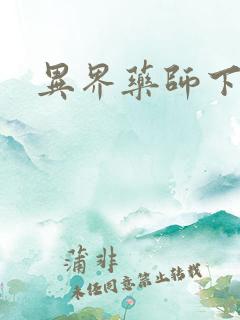 異界藥師下
蒲非
未经同意禁止转载